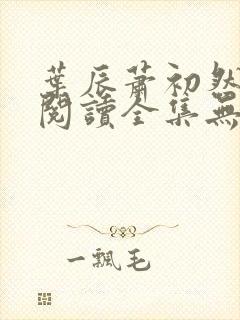 葉辰蕭初然
閱讀全集無
一飄毛